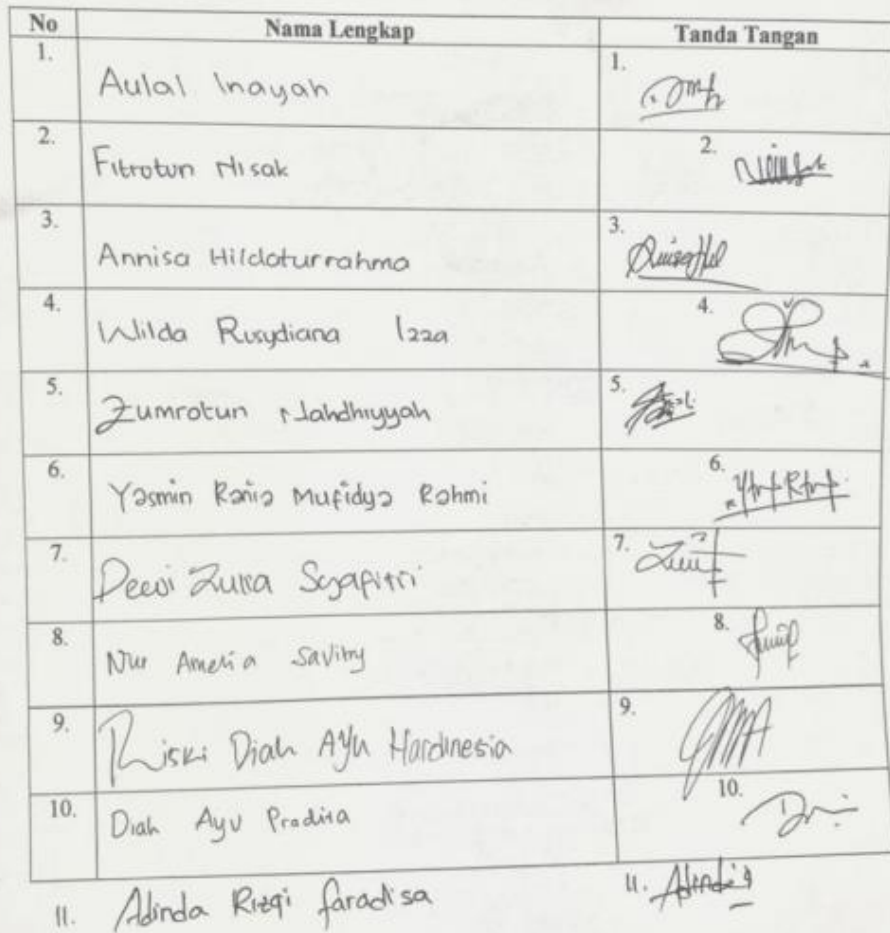 No Nama Lengkap Tanda Tangan
1. Aulal Inayah 1.
2. Fitrotun Nisak 2.
3. Annisa Hildaturrahma 3.
4. Wilda Rusydiana Izza 4.
5. Zumrotun Nahdhiyyah 5.
6. Yasmin Rania Mufidya Rahmi 6.
7. Dewi Zulfa Syafitri 7.
8. Nur Amelia Savitry 8.
9. Riski Diah Ayu Hardinesia 9.
10. Diah Ayu Pradita 10.
11. Adinda Rizqi faradisa 11. Adinda